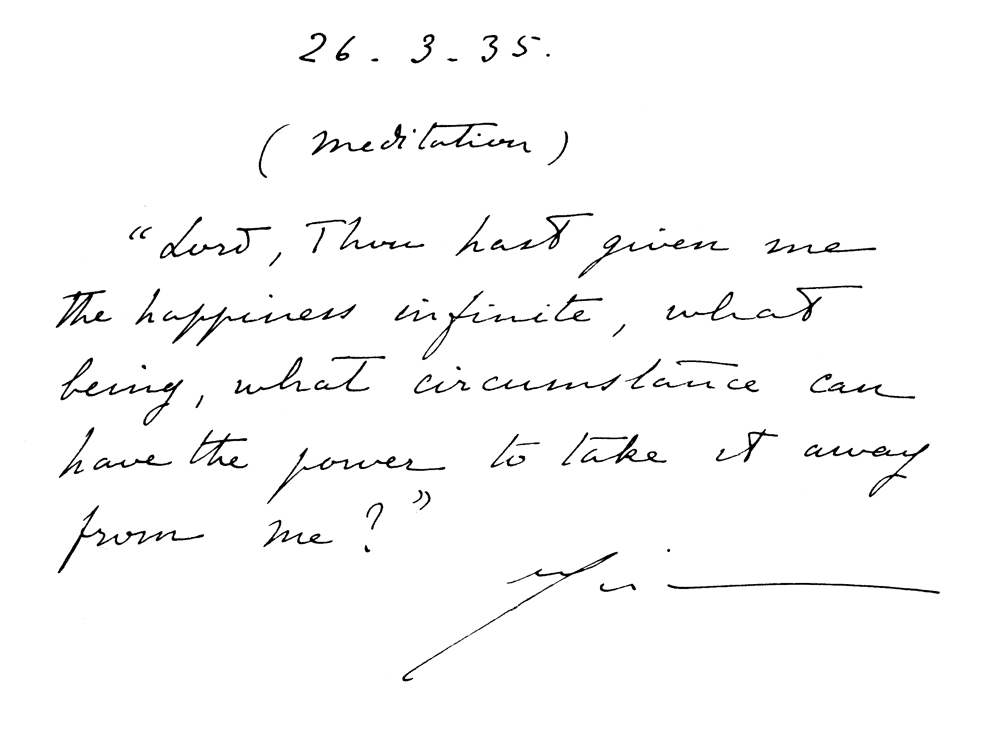 26 - 3 - 35.
(meditation)
“Lord, Thou hast given me
the happiness infinite, what
being, what circumstance can
have the power to take it away
from me?”